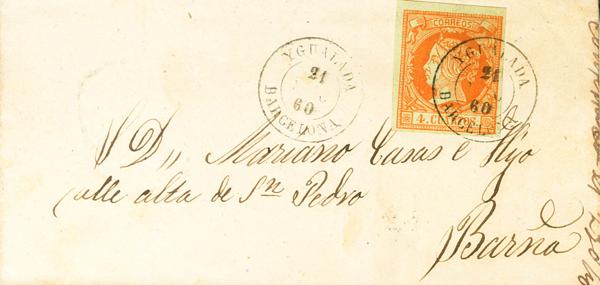 YGUALADA
21
60
BARCELONA
CORREOS
4 CUARTOS
YGUALADA
21
60
BARCELONA
D,, Mariano Casas e Hyo
alle alta de Sn Pedro
Barña